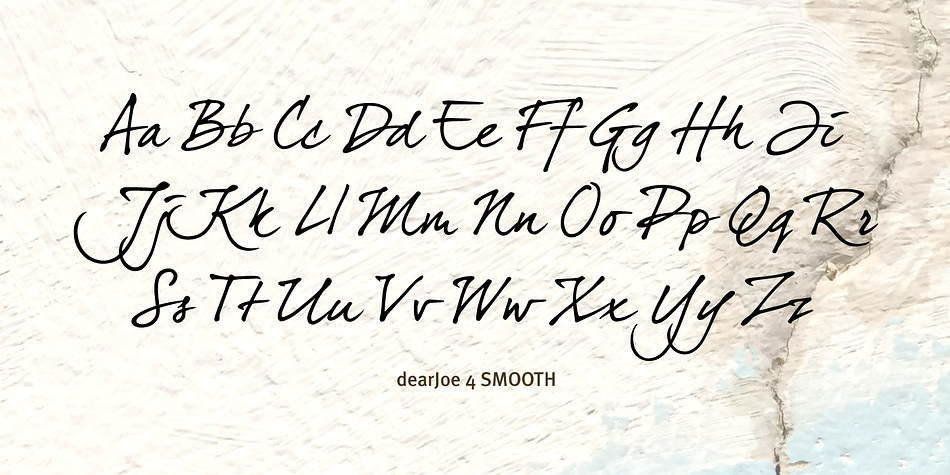 Aa Bb Cc Dd Ee Ff Gg Hh Ii
Jj Kk Ll Mm Nn Oo Pp Qq Rr
Ss Tt Uu Vv Ww Xx Yy Zz
dearJoe 4 SMOOTH